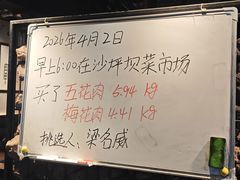 2026年4月2日
早上6:00在沙坪坝菜市场
买了五花肉 5.94 kg
梅花肉 4.41 kg
挑选人：梁名威